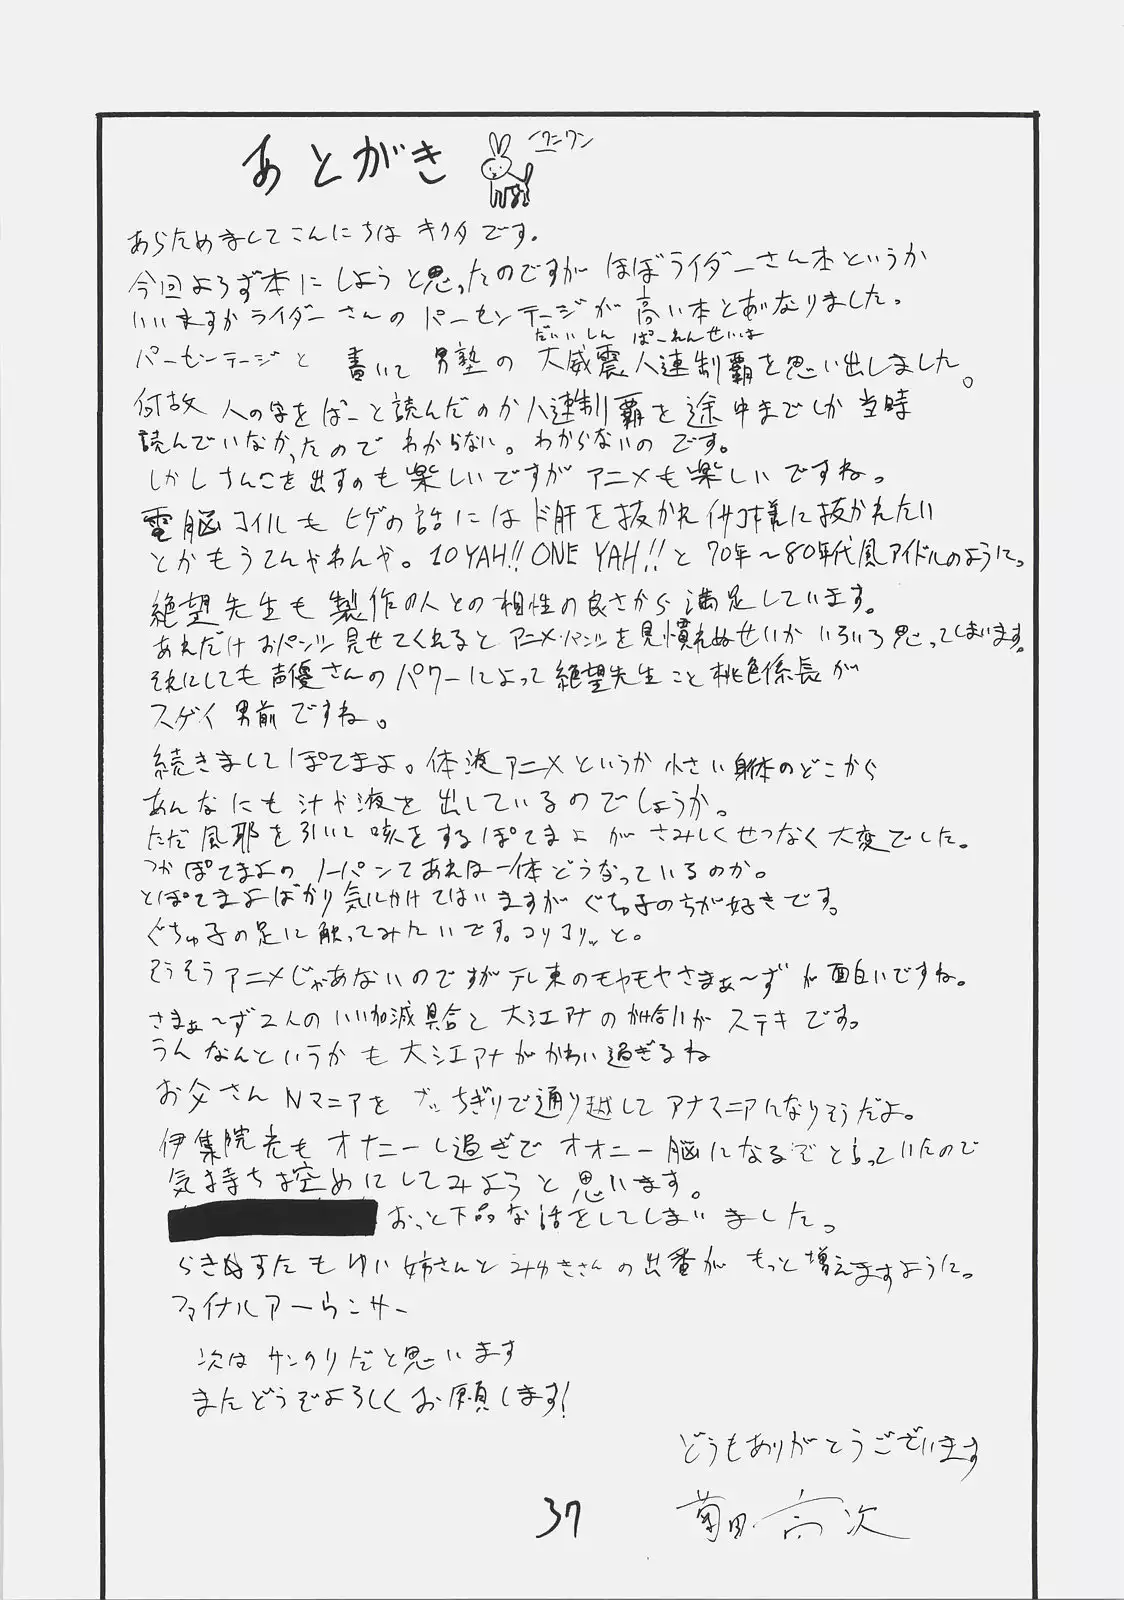 あとがき
ワンワン
あらためましてこんにちは キクタです。
今回よろず本にしようと思ったのですが ほぼライダーさん本というか
いいますかライダーさんのパーセンテージが高い本とあいなりました。
だいいしん ぱーれんせいは
パーセンテージと書いて男塾の大威震八連制覇を思い出しました。
何故 八の字をぱーと読んだのか八連制覇を途中までしか当時
読んでいなかったので わからない。わからないのです。
しかしさんこを出すのも楽しいですがアニメも楽しいですね。
電脳コイルもヒゲの話にはド肝を抜かれイサコ様に抜かれたい
とかもうてんやわんや。10YAH!! ONE YAH!!と70年〜80年代風アイドルのように。
絶望先生も製作の人との相性の良さから満足しています。
あれだけおパンツ見せてくれるとアニメ・パンツを見慣れぬせいかいろいろ思ってしまいます。
それにしても声優さんのパワーによって絶望先生こと桃色係長が
スゲイ男前ですね。
続きましてぽてまよ。体液アニメというか小さい身体のどこから
あんなにも汁や液を出しているのでしょうか。
ただ風邪を引いて咳をするぽてまよがさみしくせつなく大変でした。
つかぽてまよのノーパンてあれは一体どうなっているのか。
とぽてまよばかり気にかけてはいますがぐちゅ子のちが好きです。
ぐちゅ子の足に触ってみたいです。コリコリッと。
そうそうアニメじゃあないのですがテレ東のモヤモヤさまぁ〜ずが面白いですね。
さまぁ〜ず2人のいい加減具合と大江アナの絡みがステキです。
うんなんというかも大江アナがかわい過ぎるね
お父さんNマニアをブッちぎりで通り越してアナマニアになりそうだよ。
伊集院光もオナニーし過ぎでオオニー脳になるぞと言っていたので
気持ち控めにしてみようと思います。
おっと下品な話をしてしまいました。
らき☆すたもゆい姉さんとみゆきさんの出番がもっと増えますように。
ファイナルアーうンサー
次はサンクリだと思います
またどうぞよろしくお願します!
どうもありがとうございます
菊田高次
37